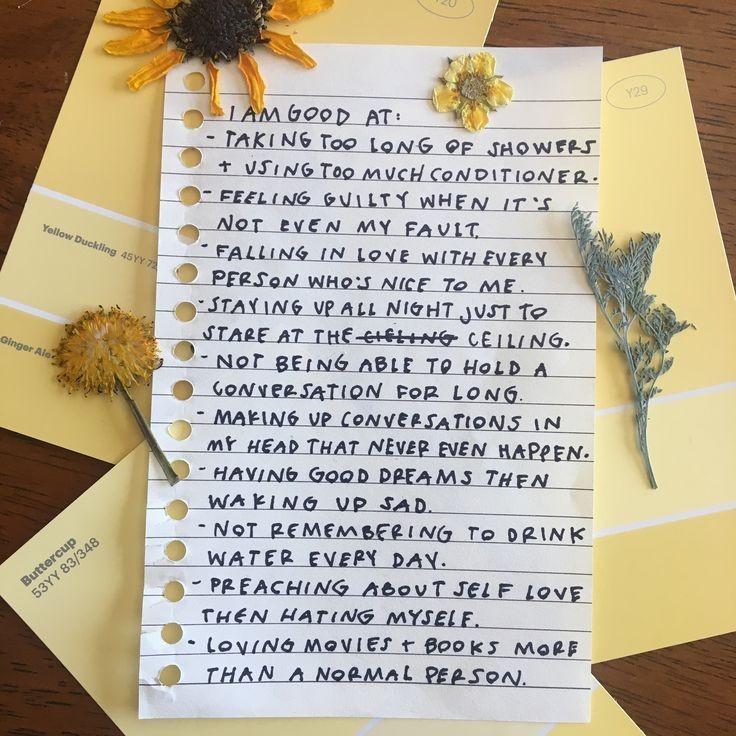 Y20
Y29
I AM GOOD AT:
- TAKING TOO LONG OF SHOWERS
+ USING TOO MUCH CONDITIONER.
- FEELING GUILTY WHEN IT'S
NOT EVEN MY FAULT.
- FALLING IN LOVE WITH EVERY
PERSON WHO'S NICE TO ME.
- STAYING UP ALL NIGHT JUST TO
STARE AT THE CIELING CEILING.
- NOT BEING ABLE TO HOLD A
CONVERSATION FOR LONG.
- MAKING UP CONVERSATIONS IN
MY HEAD THAT NEVER EVEN HAPPEN.
- HAVING GOOD DREAMS THEN
WAKING UP SAD.
- NOT REMEMBERING TO DRINK
WATER EVERY DAY.
- PREACHING ABOUT SELF LOVE
THEN HATING MYSELF.
- LOVING MOVIES + BOOKS MORE
THAN A NORMAL PERSON.
Yellow Duckling 45YY 72
Ginger Ale
Buttercup
53YY 83/348